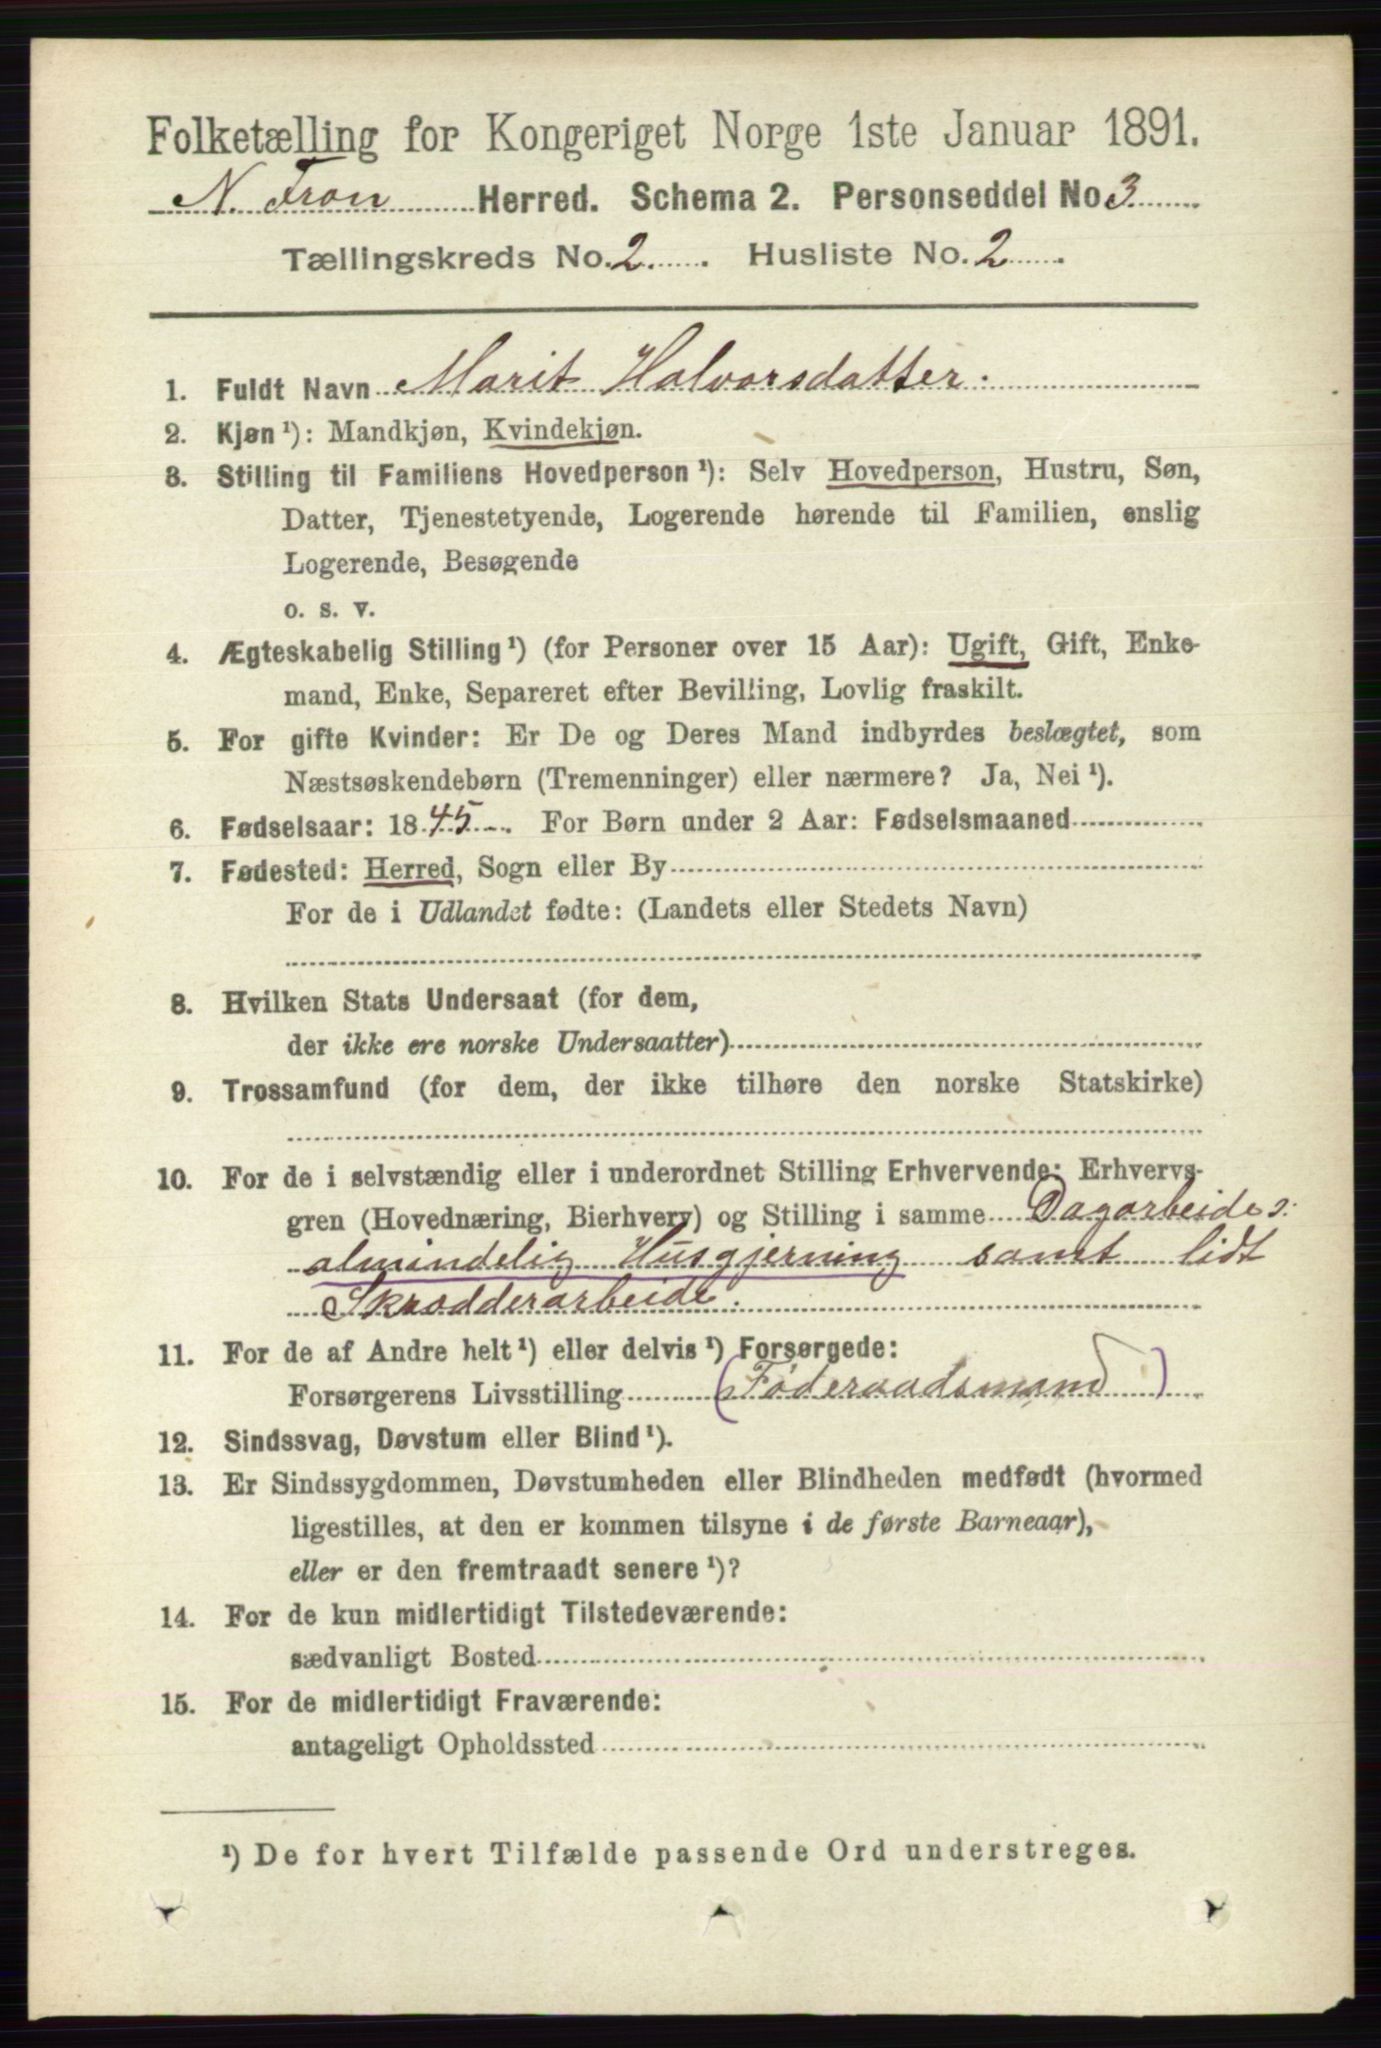 Folketælling for Kongeriget Norge 1ste Januar 1891.
N. Fron Herred. Schema 2. Personseddel No 3
Tællingskreds No. 2. Husliste No. 2
1. Fuldt Navn Marit Halvorsdatter.
2. Kjøn ¹): Mandkjøn, Kvindekjøn.
3. Stilling til Familiens Hovedperson ¹): Selv Hovedperson, Hustru, Søn,
Datter, Tjenestetyende, Logerende hørende til Familien, enslig
Logerende, Besøgende
o. s. v.
4. Ægteskabelig Stilling ¹) (for Personer over 15 Aar): Ugift, Gift, Enke-
mand, Enke, Separeret efter Bevilling, Lovlig fraskilt.
5. For gifte Kvinder: Er De og Deres Mand indbyrdes beslægtet, som
Næstsøskendebørn (Tremenninger) eller nærmere? Ja, Nei ¹).
6. Fødselsaar: 1845. For Børn under 2 Aar: Fødselsmaaned
7. Fødested: Herred, Sogn eller By
For de i Udlandet fødte: (Landets eller Stedets Navn)
8. Hvilken Stats Undersaat (for dem,
der ikke ere norske Undersaatter)
9. Trossamfund (for dem, der ikke tilhøre den norske Statskirke)
10. For de i selvstændig eller i underordnet Stilling Erhvervende: Erhvervs-
gren (Hovednæring, Bierhverv) og Stilling i samme Dagarbeide s:
almindelig Husgjerning samt lidt
Skrædderarbeide.
11. For de af Andre helt ¹) eller delvis ¹) Forsørgede:
Forsørgerens Livsstilling (Føderaadsmand)
12. Sindssvag, Døvstum eller Blind ¹).
13. Er Sindssygdommen, Døvstumheden eller Blindheden medfødt (hvormed
ligestilles, at den er kommen tilsyne i de første Barneaar),
eller er den fremtraadt senere ¹)?
14. For de kun midlertidigt Tilstedeværende:
sædvanligt Bosted
15. For de midlertidigt Fraværende:
antageligt Opholdssted
¹) De for hvert Tilfælde passende Ord understreges.